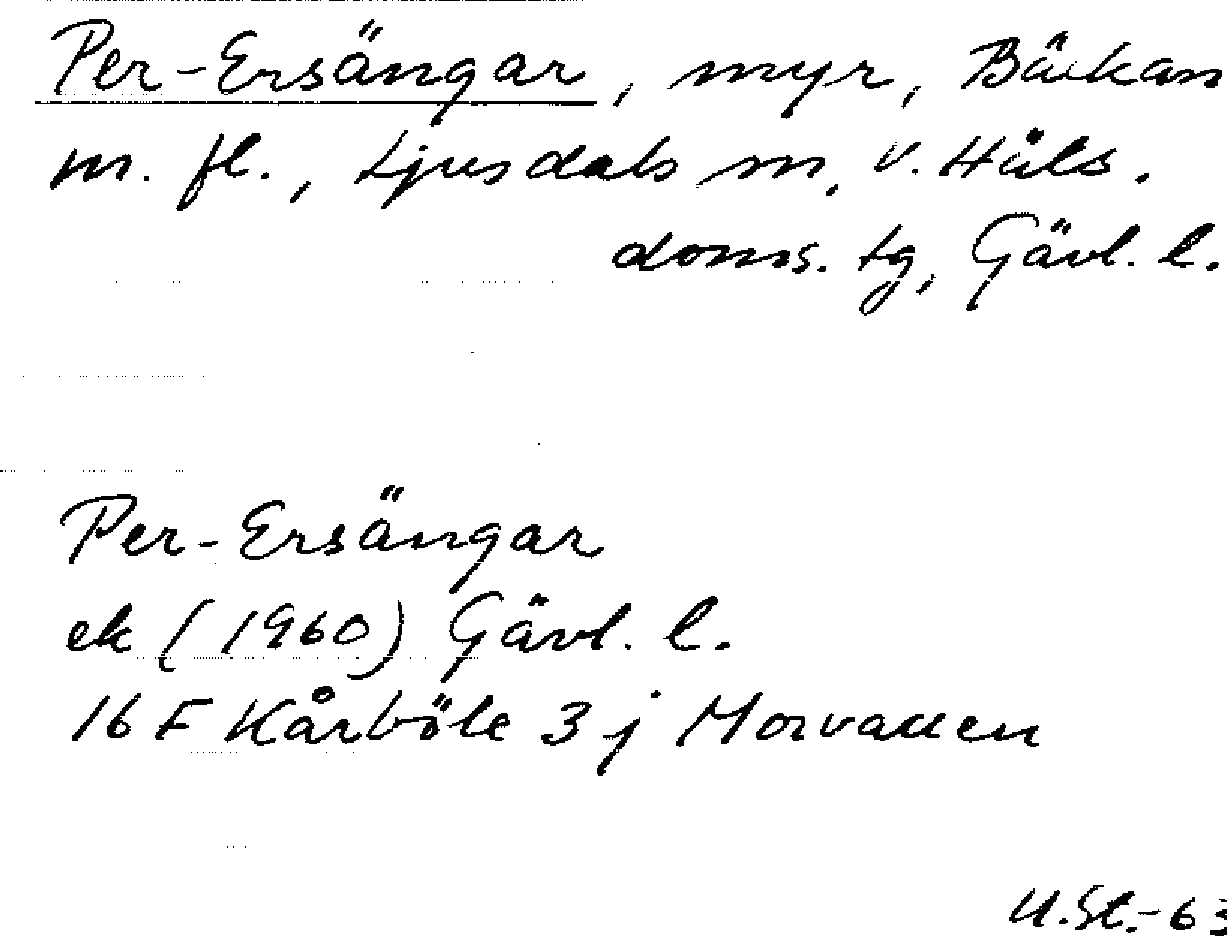 Per-Ersängar, myr, Bäckan
m. fl., Ljusdals m, V. Häls.
doms. tg, Gävl. l.
Per-Ersängar
ek (1960) Gävl. l.
16 F Kårböle 3 j Morvallen
U.St.-63